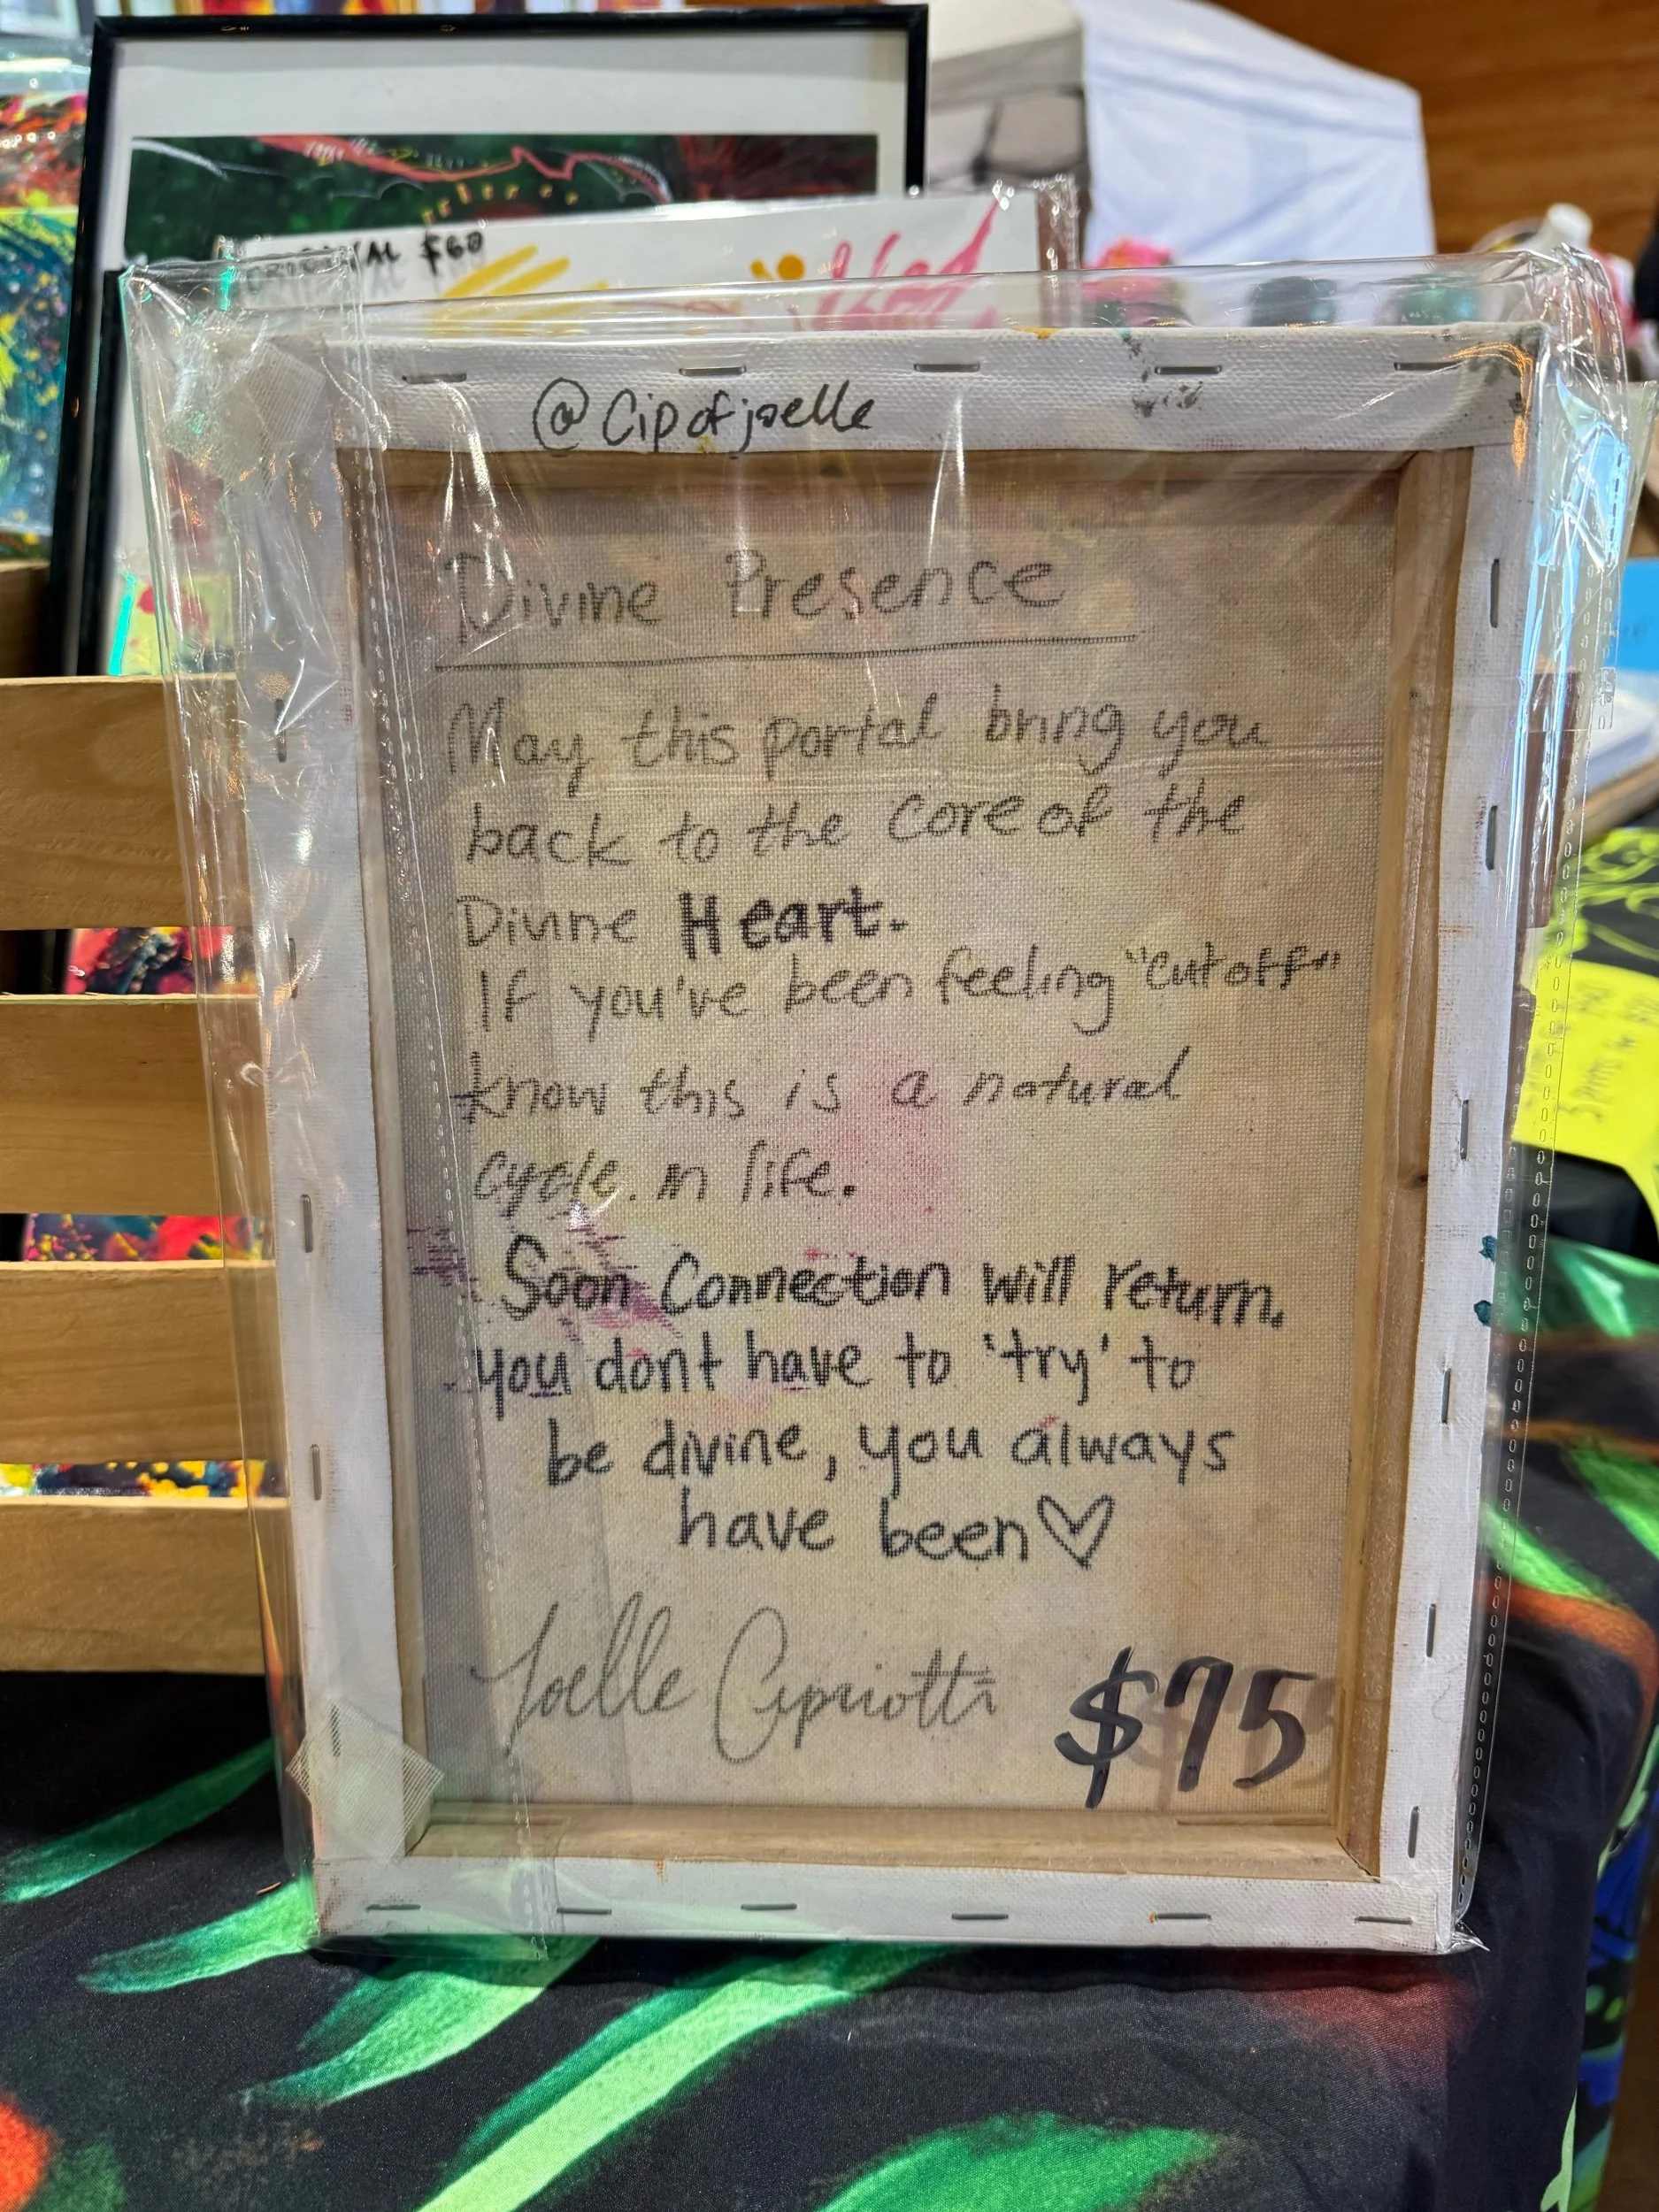 ORIGINAL $60
@Cipofjoelle
Divine Presence
May this portal bring you
back to the core of the
Divine Heart.
If you've been feeling "cutoff"
know this is a natural
cycle. in life.
Soon Connection will return.
you dont have to 'try' to
be divine, you always
have been♡
Joelle Cipriotti
$75